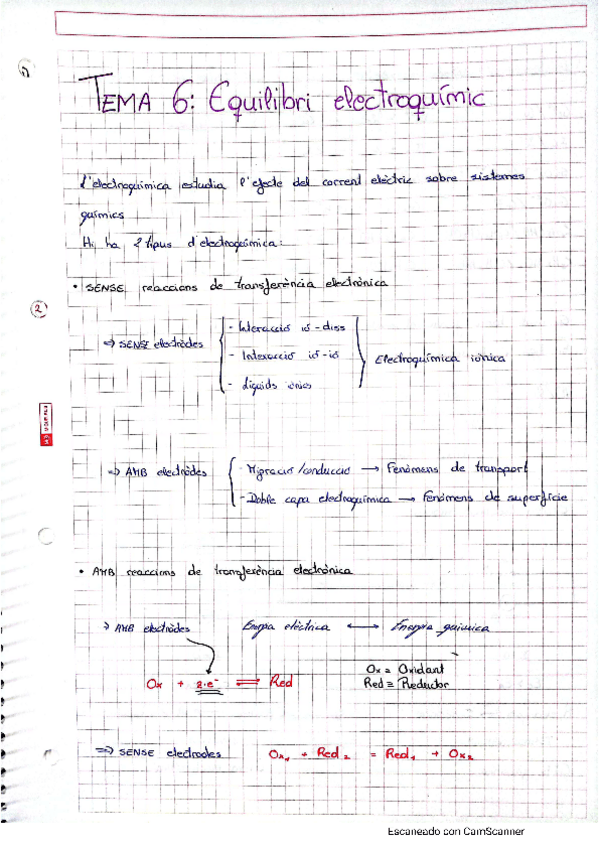 TEMA 6: Equilibri electroquímic
L'electroquímica estudia l'efecte del corrent elèctric sobre sistemes
químics
Hi ha 2 tipus d'electroquímica:
• SENSE reaccions de transferència electrònica
2
⇒ SENSE electrodes
- Interacció ió-diss
- Interacció ió-ió
- Líquids iònics
Electroquímica iònica
⇒ AMB electrodes
- Migració/conducció → Fenòmens de transport
- Doble capa electroquímica → Fenòmens de superfície
• AMB reaccions de transferència electrònica
⇒ AMB electrodes Energia elèctrica ⟷ Energia química
Ox + 2·e⁻ ⇌ Red
Ox ≡ Oxidant
Red ≡ Reductor
⇒ SENSE electrodes Ox₁ + Red₂ = Red₁ + Ox₂
Escaneado con CamScanner